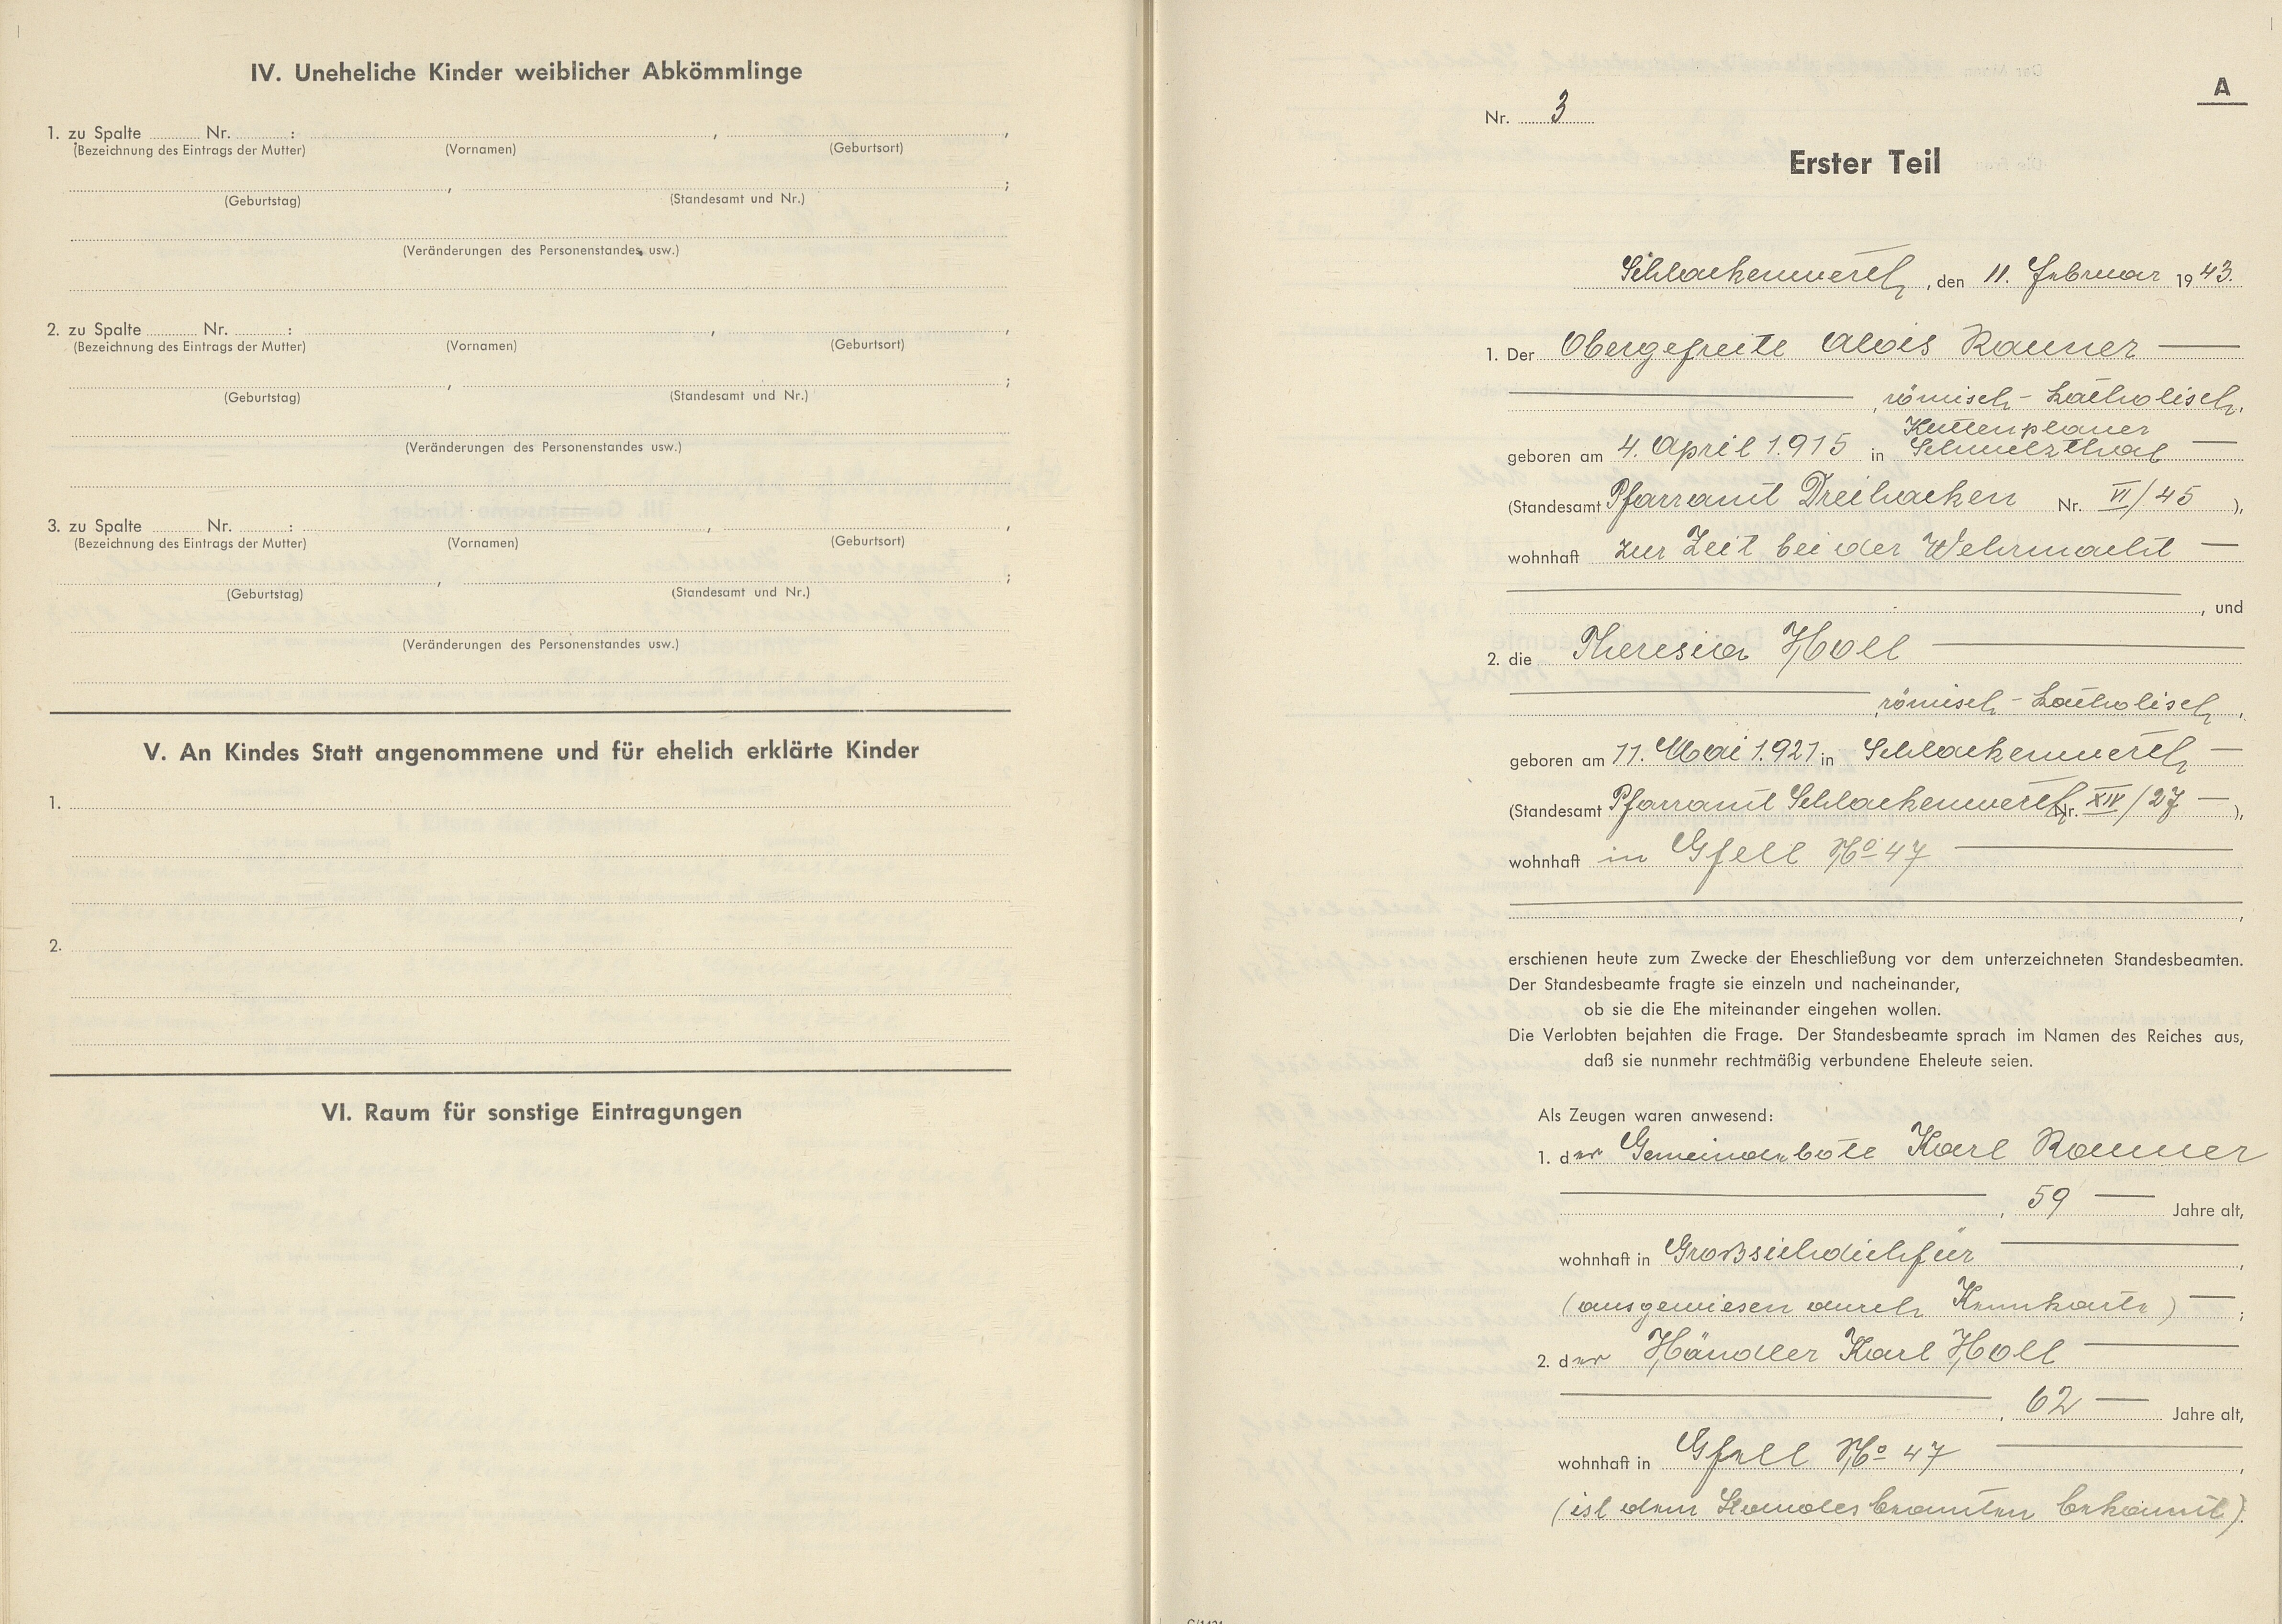 IV. Uneheliche Kinder weiblicher Abkömmlinge
1. zu Spalte Nr. : , ,
(Bezeichnung des Eintrags der Mutter) (Vornamen) (Geburtsort)
, ;
(Geburtstag) (Standesamt und Nr.)
(Veränderungen des Personenstandes usw.)
2. zu Spalte Nr. : , ,
(Bezeichnung des Eintrags der Mutter) (Vornamen) (Geburtsort)
, ;
(Geburtstag) (Standesamt und Nr.)
(Veränderungen des Personenstandes usw.)
3. zu Spalte Nr. : , ,
(Bezeichnung des Eintrags der Mutter) (Vornamen) (Geburtsort)
, ;
(Geburtstag) (Standesamt und Nr.)
(Veränderungen des Personenstandes usw.)
V. An Kindes Statt angenommene und für ehelich erklärte Kinder
1.
2.
VI. Raum für sonstige Eintragungen
A
Nr. 3
Erster Teil
Schlackenwerth, den 11. Februar 1943.
1. Der Obergefreite Alois Rauner
, römisch-katholisch,
Kuttenplaner
geboren am 4. April 1.915 in Schmelzthal
(Standesamt Pfarramt Dreihacken Nr. VI/45 ),
wohnhaft zur Zeit bei der Wehrmacht
, und
2. die Theresia Holl
, römisch-katholisch,
geboren am 11. Mai 1.921 in Schlackenwerth
(Standesamt Pfarramt Schlackenwerth Nr. XIV/27 ),
wohnhaft in Gfell No 47
,
erschienen heute zum Zwecke der Eheschließung vor dem unterzeichneten Standesbeamten.
Der Standesbeamte fragte sie einzeln und nacheinander,
ob sie die Ehe miteinander eingehen wollen.
Die Verlobten bejahten die Frage. Der Standesbeamte sprach im Namen des Reiches aus,
daß sie nunmehr rechtmäßig verbundene Eheleute seien.
Als Zeugen waren anwesend:
1. der Gemeindebote Karl Rauner
, 59 Jahre alt,
wohnhaft in Großsichdichfür ,
(ausgewiesen durch Kennkarte) ;
2. der Händler Karl Holl
, 62 Jahre alt,
wohnhaft in Gfell No 47 ,
(ist dem Standesbeamten bekannt).